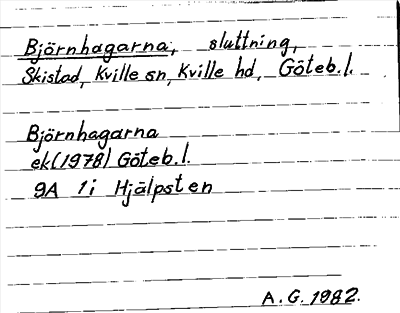 Björnhagarna, sluttning,
Skistad, Kville sn, Kville hd, Göteb. l.
Björnhagarna
ek (1978) Göteb. l.
9A 1i Hjälpsten
A. G. 1982.